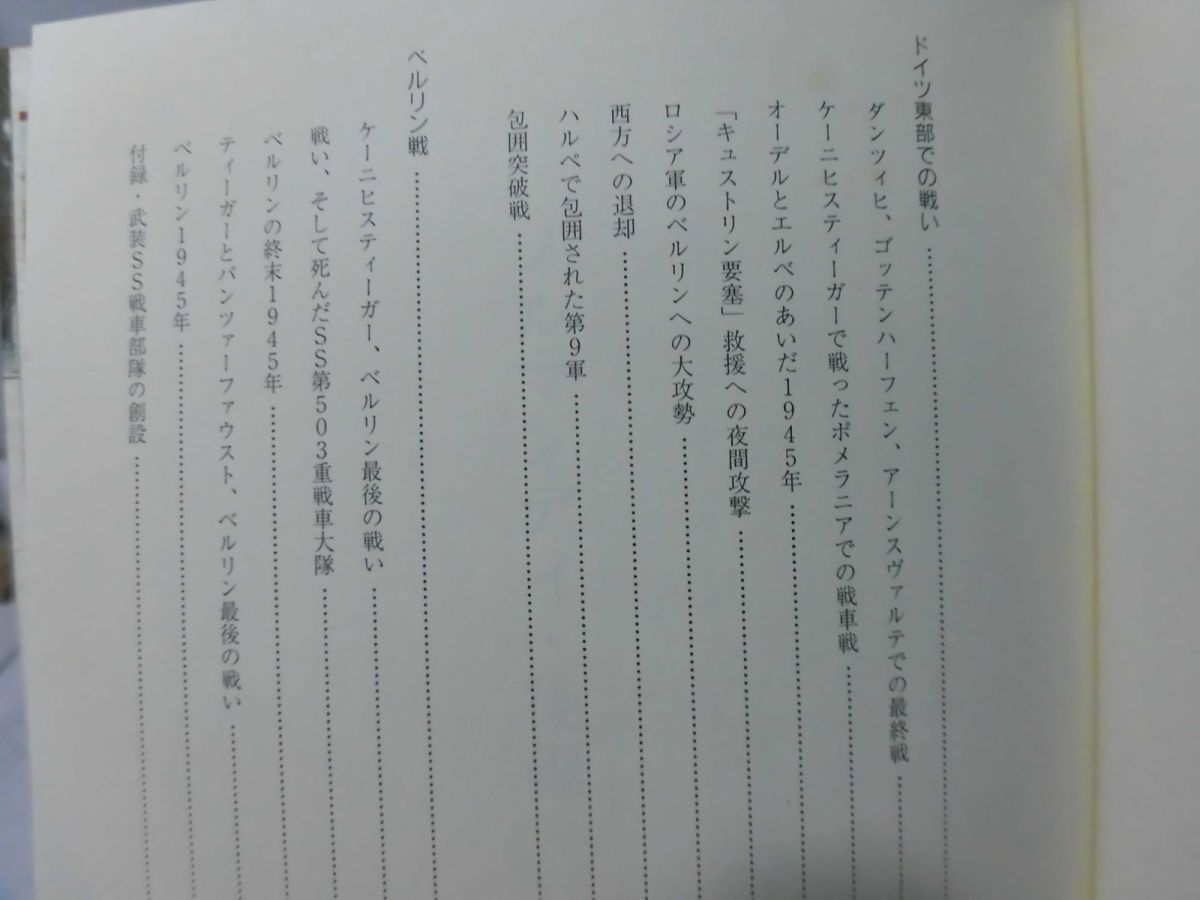 ドイツ東部での戦い
ダンツィヒ、ゴッテンハーフェン、アーンスヴァルテでの最終戦
ケーニヒスティーガーで戦ったポメラニアでの戦車戦
オーデルとエルベのあいだ1945年
「キュストリン要塞」救援への夜間攻撃
ロシア軍のベルリンへの大攻勢
西方への退却
ハルペで包囲された第9軍
包囲突破戦
ベルリン戦
ケーニヒスティーガー、ベルリン最後の戦い
戦い、そして死んだSS第503重戦車大隊
ベルリンの終末1945年
ティーガーとパンツァーファウスト、ベルリン最後の戦い
ベルリン1945年
付録・武装SS戦車部隊の創設